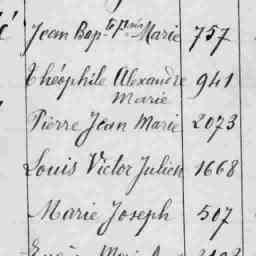 Jean Bap.te Marie 757
Théophile Alexandre 941
Marie
Pierre Jean Marie 2073
Louis Victor Julien 1668
Marie Joseph 507